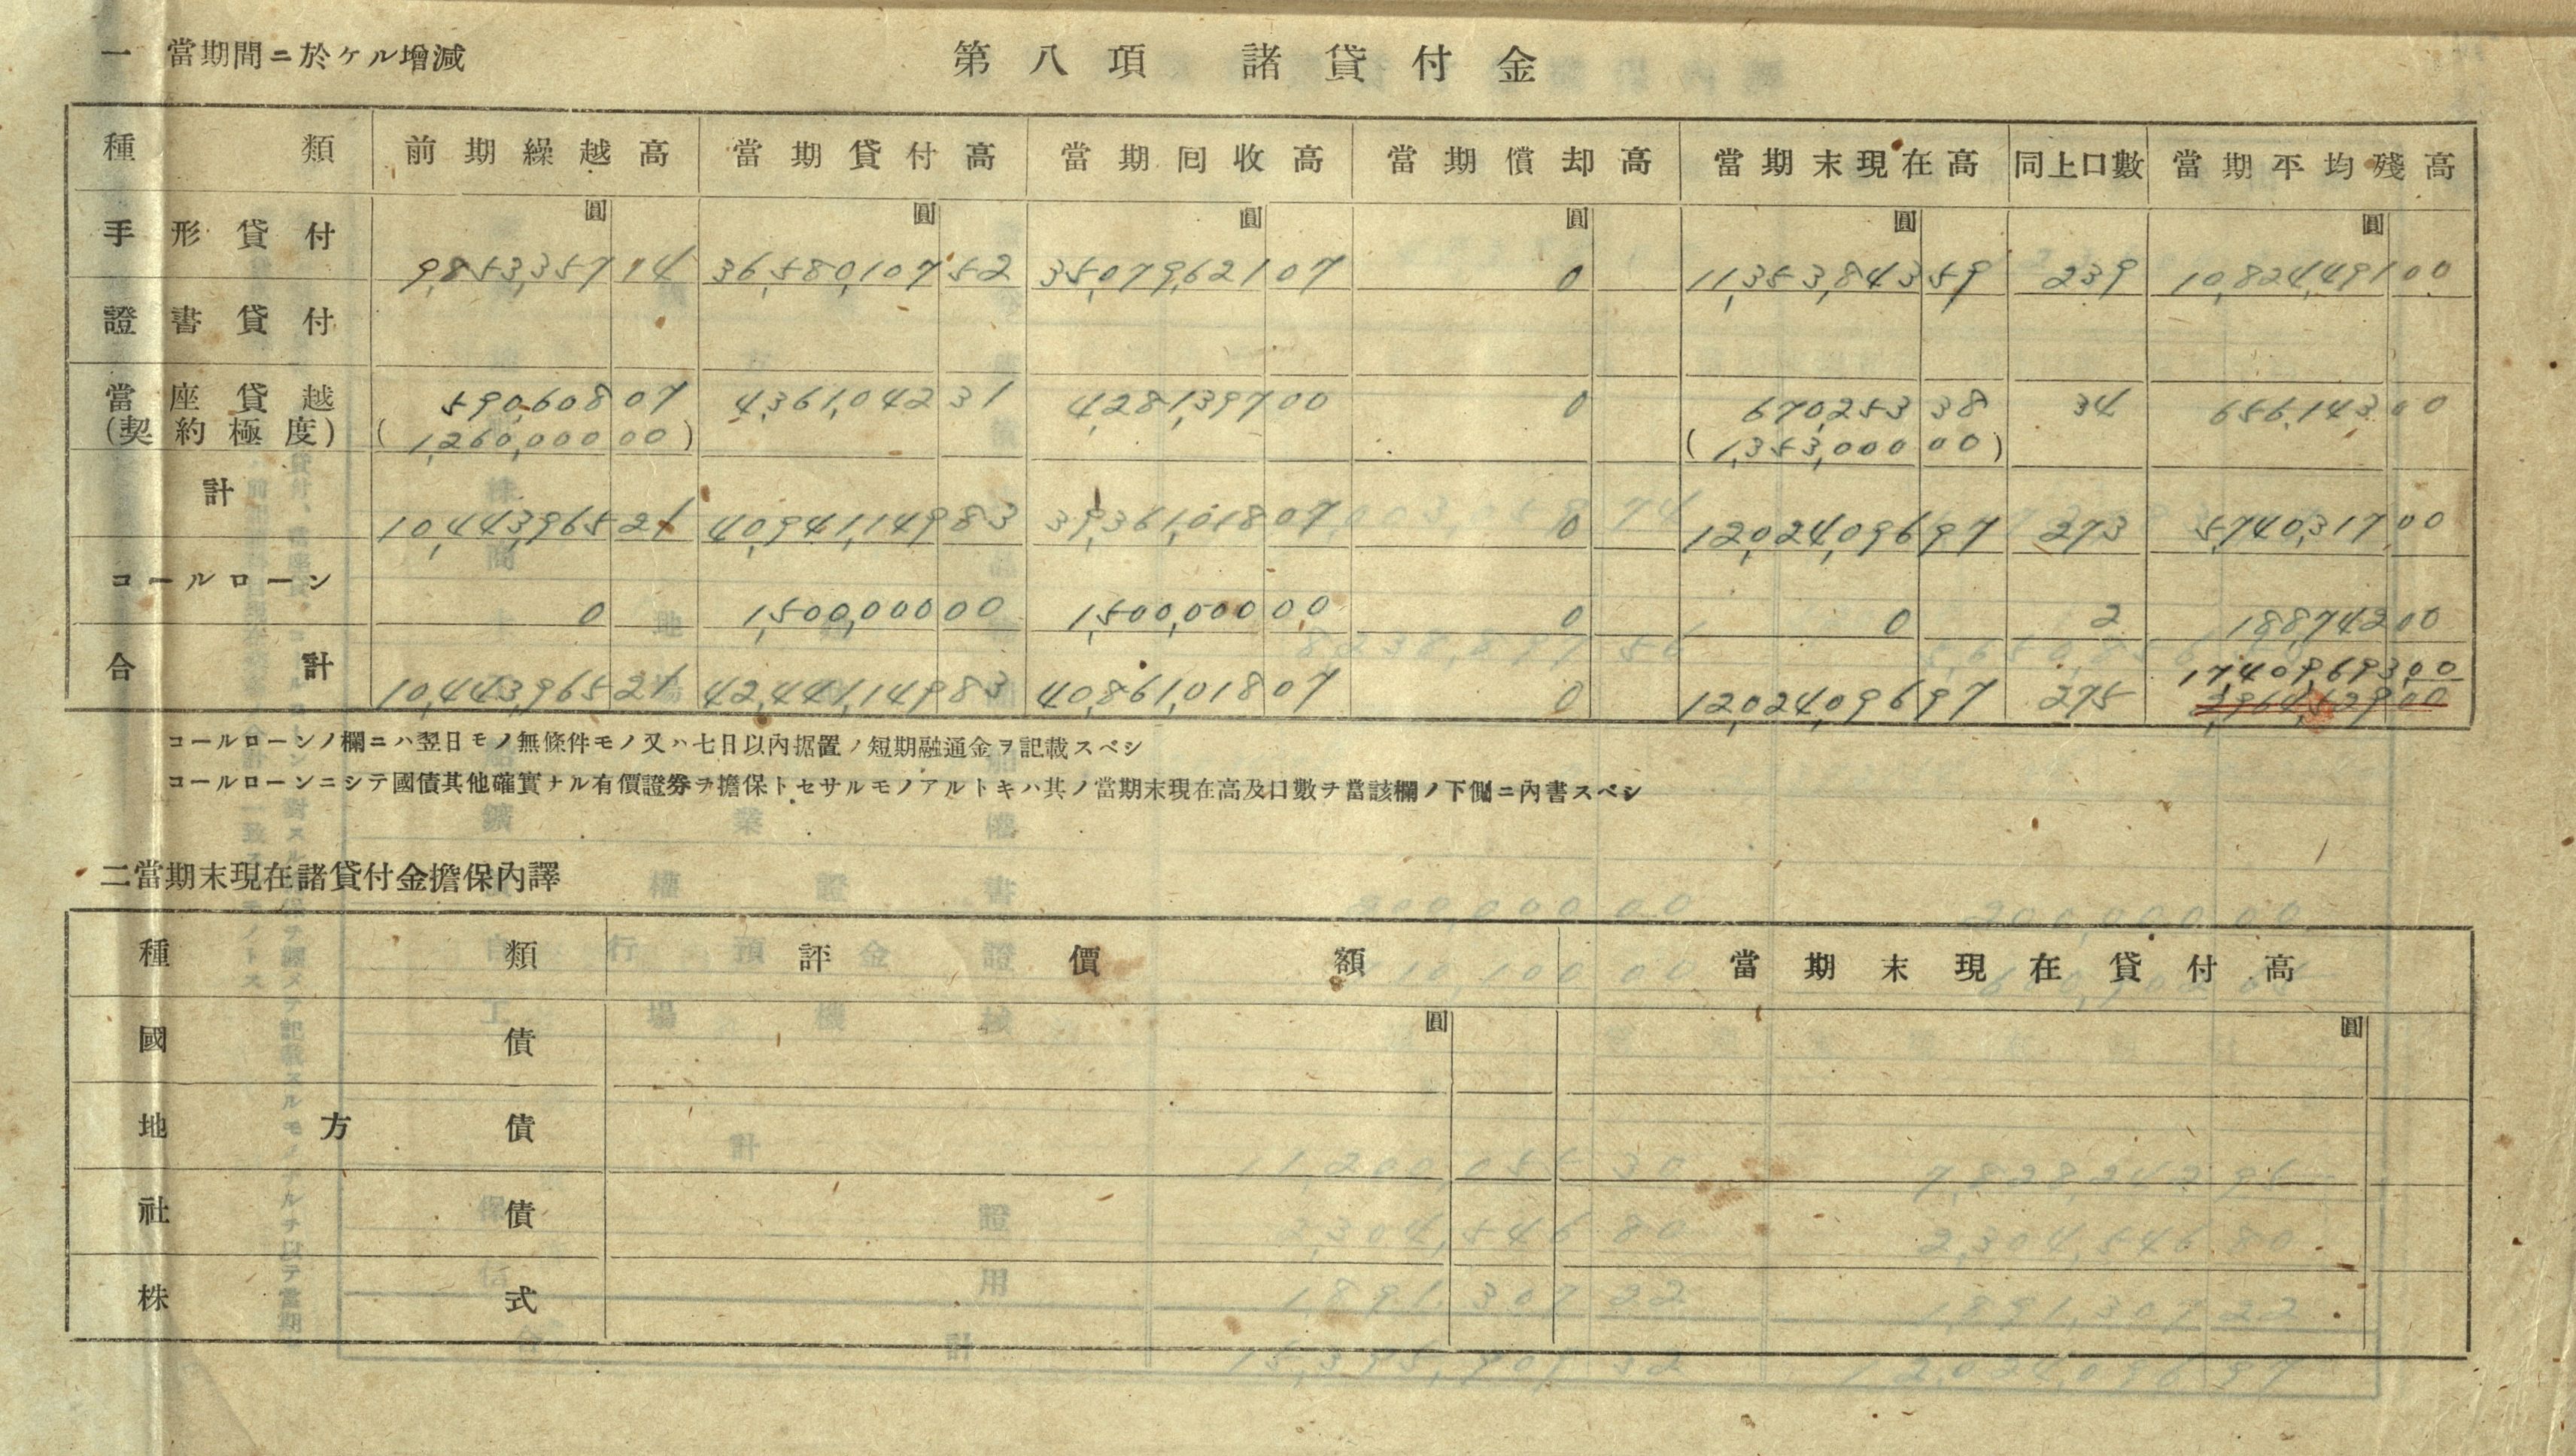 一 當期間ニ於ケル增減
第八項 諸貸付金
種類 前期繰越高 當期貸付高 當期囘收高 當期償却高 當期末現在高 同上口數 當期平均殘高
圓 圓 圓 圓 圓 圓
手形貸付 9,853,357 14 36,580,107 52 35,079,621 07 0 11,353,843 59 239 10,824,491 00
證書貸付
當座貸越 590,608 07 4,361,042 31 4,281,397 00 0 670,253 38 34 656,143 00
(契約極度) (1,260,000 00) (1,353,000 00)
計 10,443,965 21 40,941,149 83 39,361,018 07 0 12,024,096 97 273 5,740,317 00
コールローン 0 1,500,000 00 1,500,000 00 0 0 2 188,742 00
17,409,693,00
合計 10,443,965 21 42,441,149 83 40,861,018 07 0 12,024,096 97 275 2,964,529 00
コールローンノ欄ニハ翌日モノ無條件モノ又ハ七日以內据置ノ短期融通金ヲ記載スベシ
コールローンニシテ國債其他確實ナル有價證券ヲ擔保トセサルモノアルトキハ其ノ當期末現在高及口數ヲ當該欄ノ下側ニ內書スベシ
二當期末現在諸貸付金擔保內譯
種類 評價額 當期末現在貸付高
圓 圓
國債
地方債
社債
株式